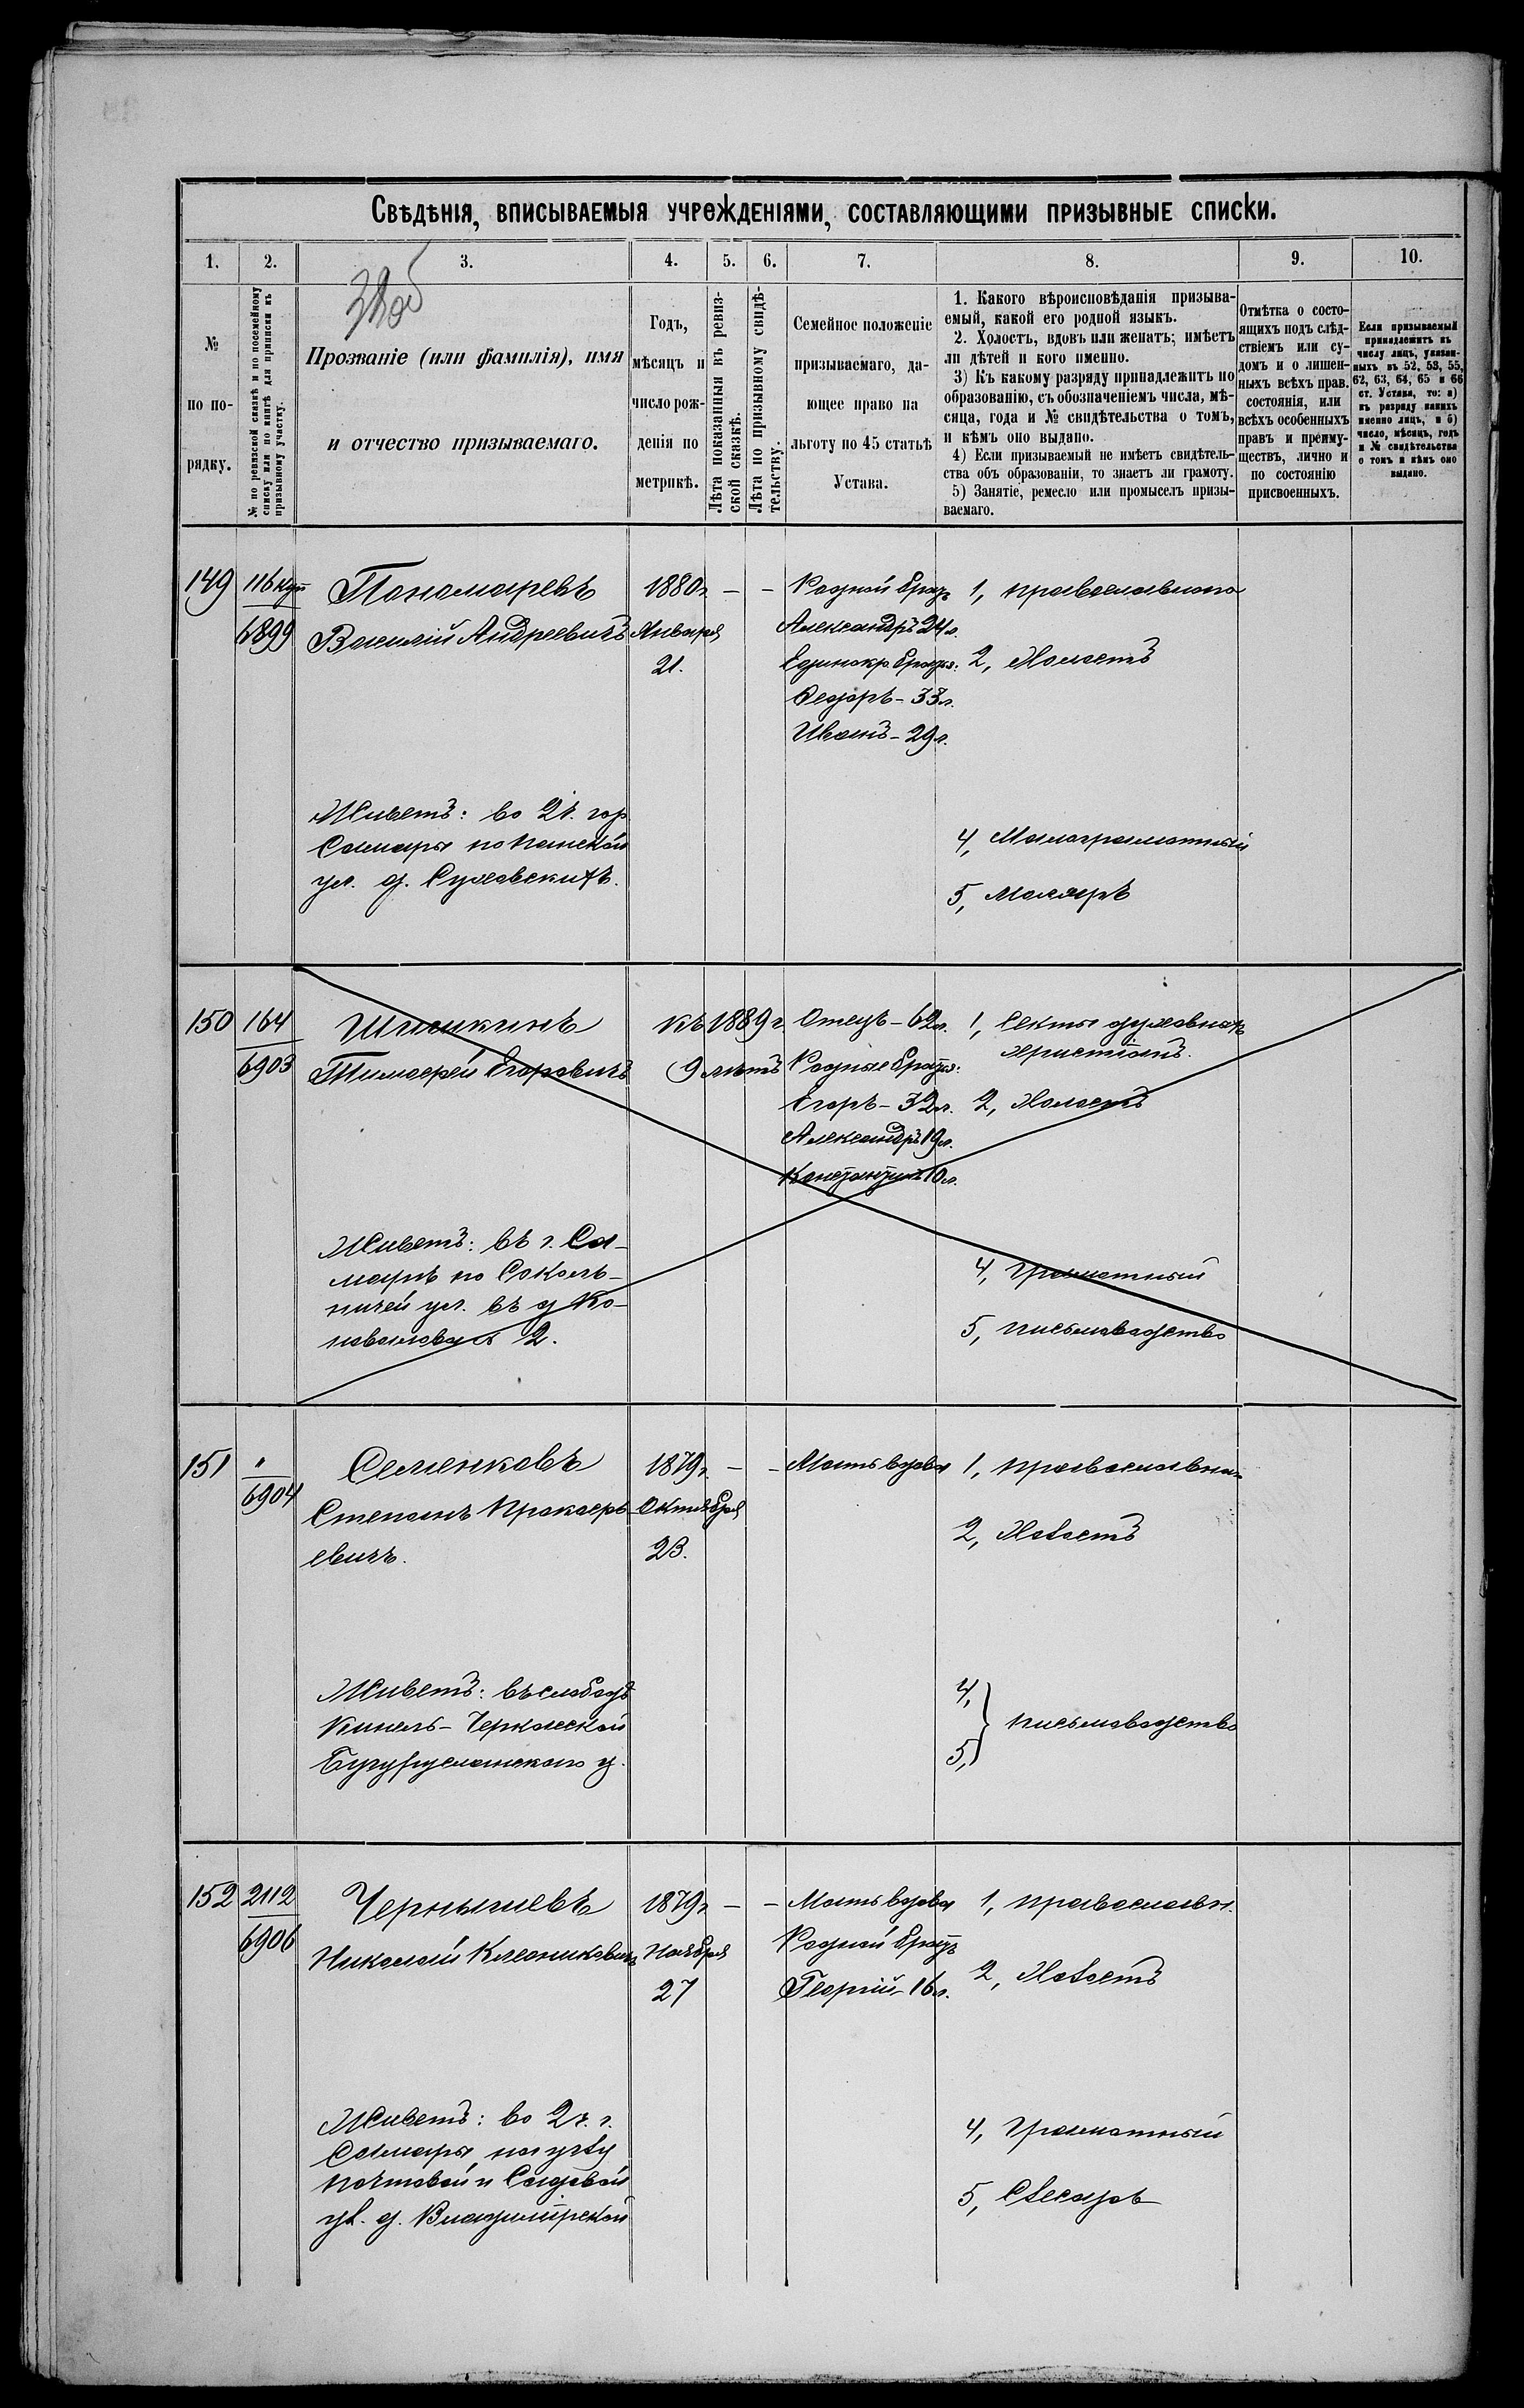 Свѣдѣнія, вписываемыя учрежденіями, составляющими призывные списки.
1.
2.
3.
4.
5.
6.
7.
8.
9.
10.
№
по по-
рядку.
№ по ревизской сказкѣ и по посемейному
списку или по книгѣ для приписки къ
призывному участку.
Прозваніе (или фамилія), имя
и отчество призываемаго.
Годъ,
мѣсяцъ и
число рож-
денія по
метрикѣ.
Лѣта показанныя въ ревиз-
ской сказкѣ.
Лѣта по призывному свидѣ-
тельству.
Семейное положеніе
призываемаго, да-
ющее право на
льготу по 45 статьѣ
Устава.
1. Какого вѣроисповѣданія призыва-
емый, какой его родной языкъ.
2. Холостъ, вдовъ или женатъ; имѣетъ
ли дѣтей и кого именно.
3) Къ какому разряду принадлежитъ по
образованію, съ обозначеніемъ числа, мѣ-
сяца, года и № свидѣтельства о томъ,
и кѣмъ оно выдано.
4) Если призываемый не имѣетъ свидѣтель-
ства объ образованіи, то знаетъ ли грамоту.
5) Занятіе, ремесло или промыселъ призы-
ваемаго.
Отмѣтка о состо-
ящихъ подъ слѣд-
ствіемъ или су-
домъ и о лишен-
ныхъ всѣхъ прав.
состоянія, или
всѣхъ особенныхъ
правъ и преиму-
ществъ, лично и
по состоянію
присвоенныхъ.
Если призываемый
принадлежитъ къ
числу лицъ, указан-
ныхъ въ 52, 53, 55,
62, 63, 64, 65 и 66
ст. Устава, то: а)
къ разряду какихъ
именно лицъ, и б)
число, мѣсяцъ, годъ
и № свидѣтельства
о томъ и кѣмъ оно
выдано.
149
116 куп
6899
Пономаревъ
Василій Андреевичъ
1880 г.
Января
21.
–
–
Родной братъ
Александръ 24 л.
Единокр. братья:
Ѳедоръ – 33 л.
Иванъ – 29 л.
1, православнаго
2, Холостъ
4, Малограмотный
5, Маляръ
Живетъ: во 2 ч. гор
Самары по Панской
ул. д. Сухавскихъ.
150
164
6903
Шишкинъ
Тимоѳей Егоровичъ
къ 1889 г.
9 лѣтъ
Отецъ – 62 л.
Родные братья:
Егоръ – 32 л.
Александръ 19 л.
Константинъ 10 л.
1, Секты духовныхъ
христіанъ.
2, Холостъ
4, Грамотный
5, письмоводство
Живетъ: въ г. Са-
марѣ по Соколь-
ничей ул. въ д Ко-
новалова 2.
151
"
6904
Семенковъ
Степанъ Прокофь
евичъ.
1879 г.
Октября
23.
–
–
Мать вдова
1, православна
2, Холостъ
4,
5, } письмоводство
Живетъ: въ слободѣ
Кинель – Черкасской
Бугурусланскаго у.
152
2112
6906
Чернышевъ
Николай Клеониковичъ
1879 г.
Ноября
27
–
–
Мать вдова
Родной братъ
Георгій – 16 л.
1, православн.
2, Холостъ
4, Грамотный
5, Слесарь
Живетъ: во 2 ч. г.
Самары, на углу
Почтовой и Садовой
ул. д. Владимірской